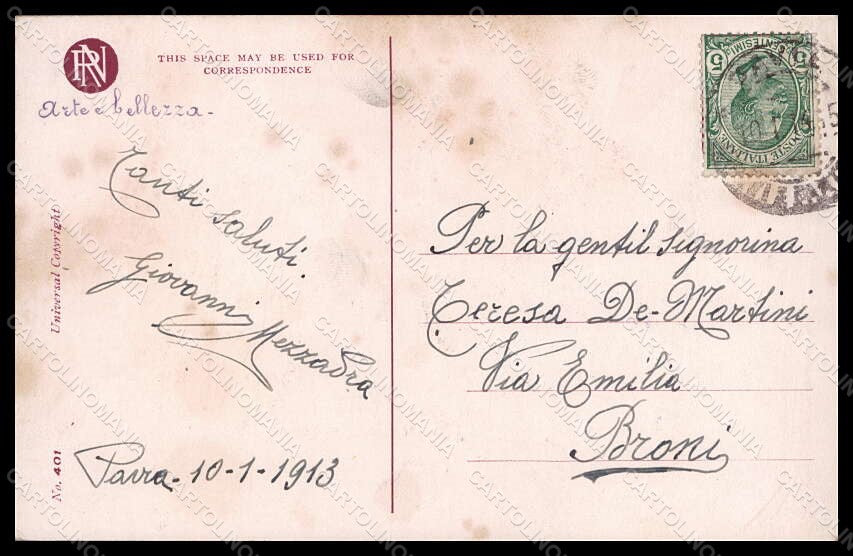 RN
THIS SPACE MAY BE USED FOR
CORRESPONDENCE
Arte e bellezza -
Tanti saluti
Giovanni Mezzadra
Pavia - 10-1-1913
Universal Copyright
No. 401
5 CENTESIMI 5
POSTE ITALIANE
Per la gentil signorina
Teresa De-Martini
Via Emilia
Broni
CARTOLINOMANIA